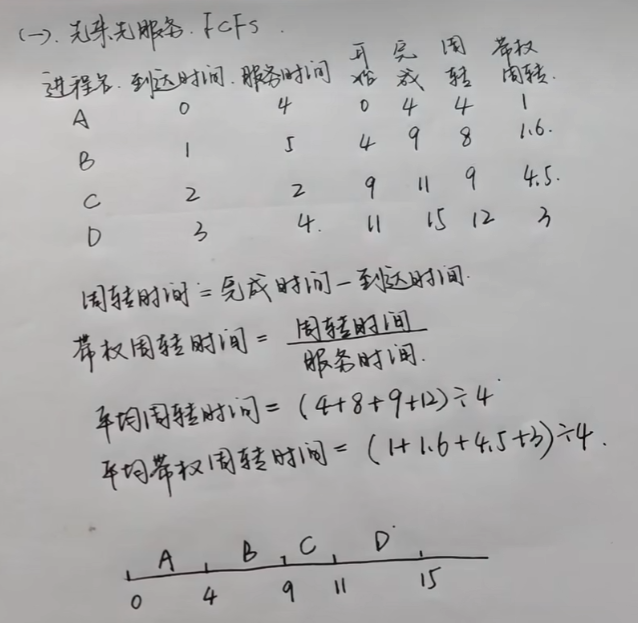 (一). 先来先服务. FCFS.
进程名. 到达时间. 服务时间 开始 完成 周转 带权周转.
A 0 4 0 4 4 1
B 1 5 4 9 8 1.6.
C 2 2 9 11 9 4.5.
D 3 4. 11 15 12 3
周转时间 = 完成时间 - 到达时间.
带权周转时间 = 周转时间 / 服务时间.
平均周转时间 = (4+8+9+12)÷4
平均带权周转时间 = (1+1.6+4.5+3)÷4.
A B C D
0 4 9 11 15